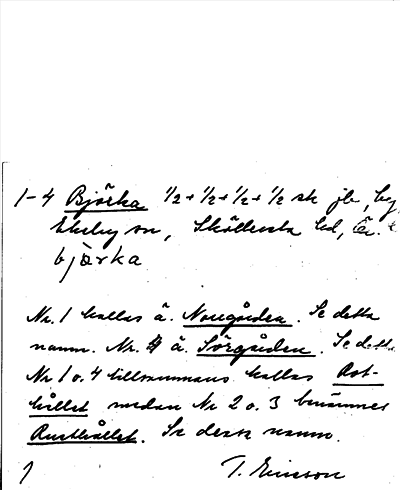 1-4 Björka 1/2+1/2+1/2+1/2 sk jb, by,
Ekeby sn, Sköllersta hd,
björka
Nr. 1 kallas ä. Norrgården. Se detta
namn. Nr. 4 ä. Sörgården. Se detta
Nr 1 o. 4 tillsammans kallas Rot-
hållet medan Nr 2 o. 3 benämnes
Rusthållet. Se dessa namn.
T. Ericsson